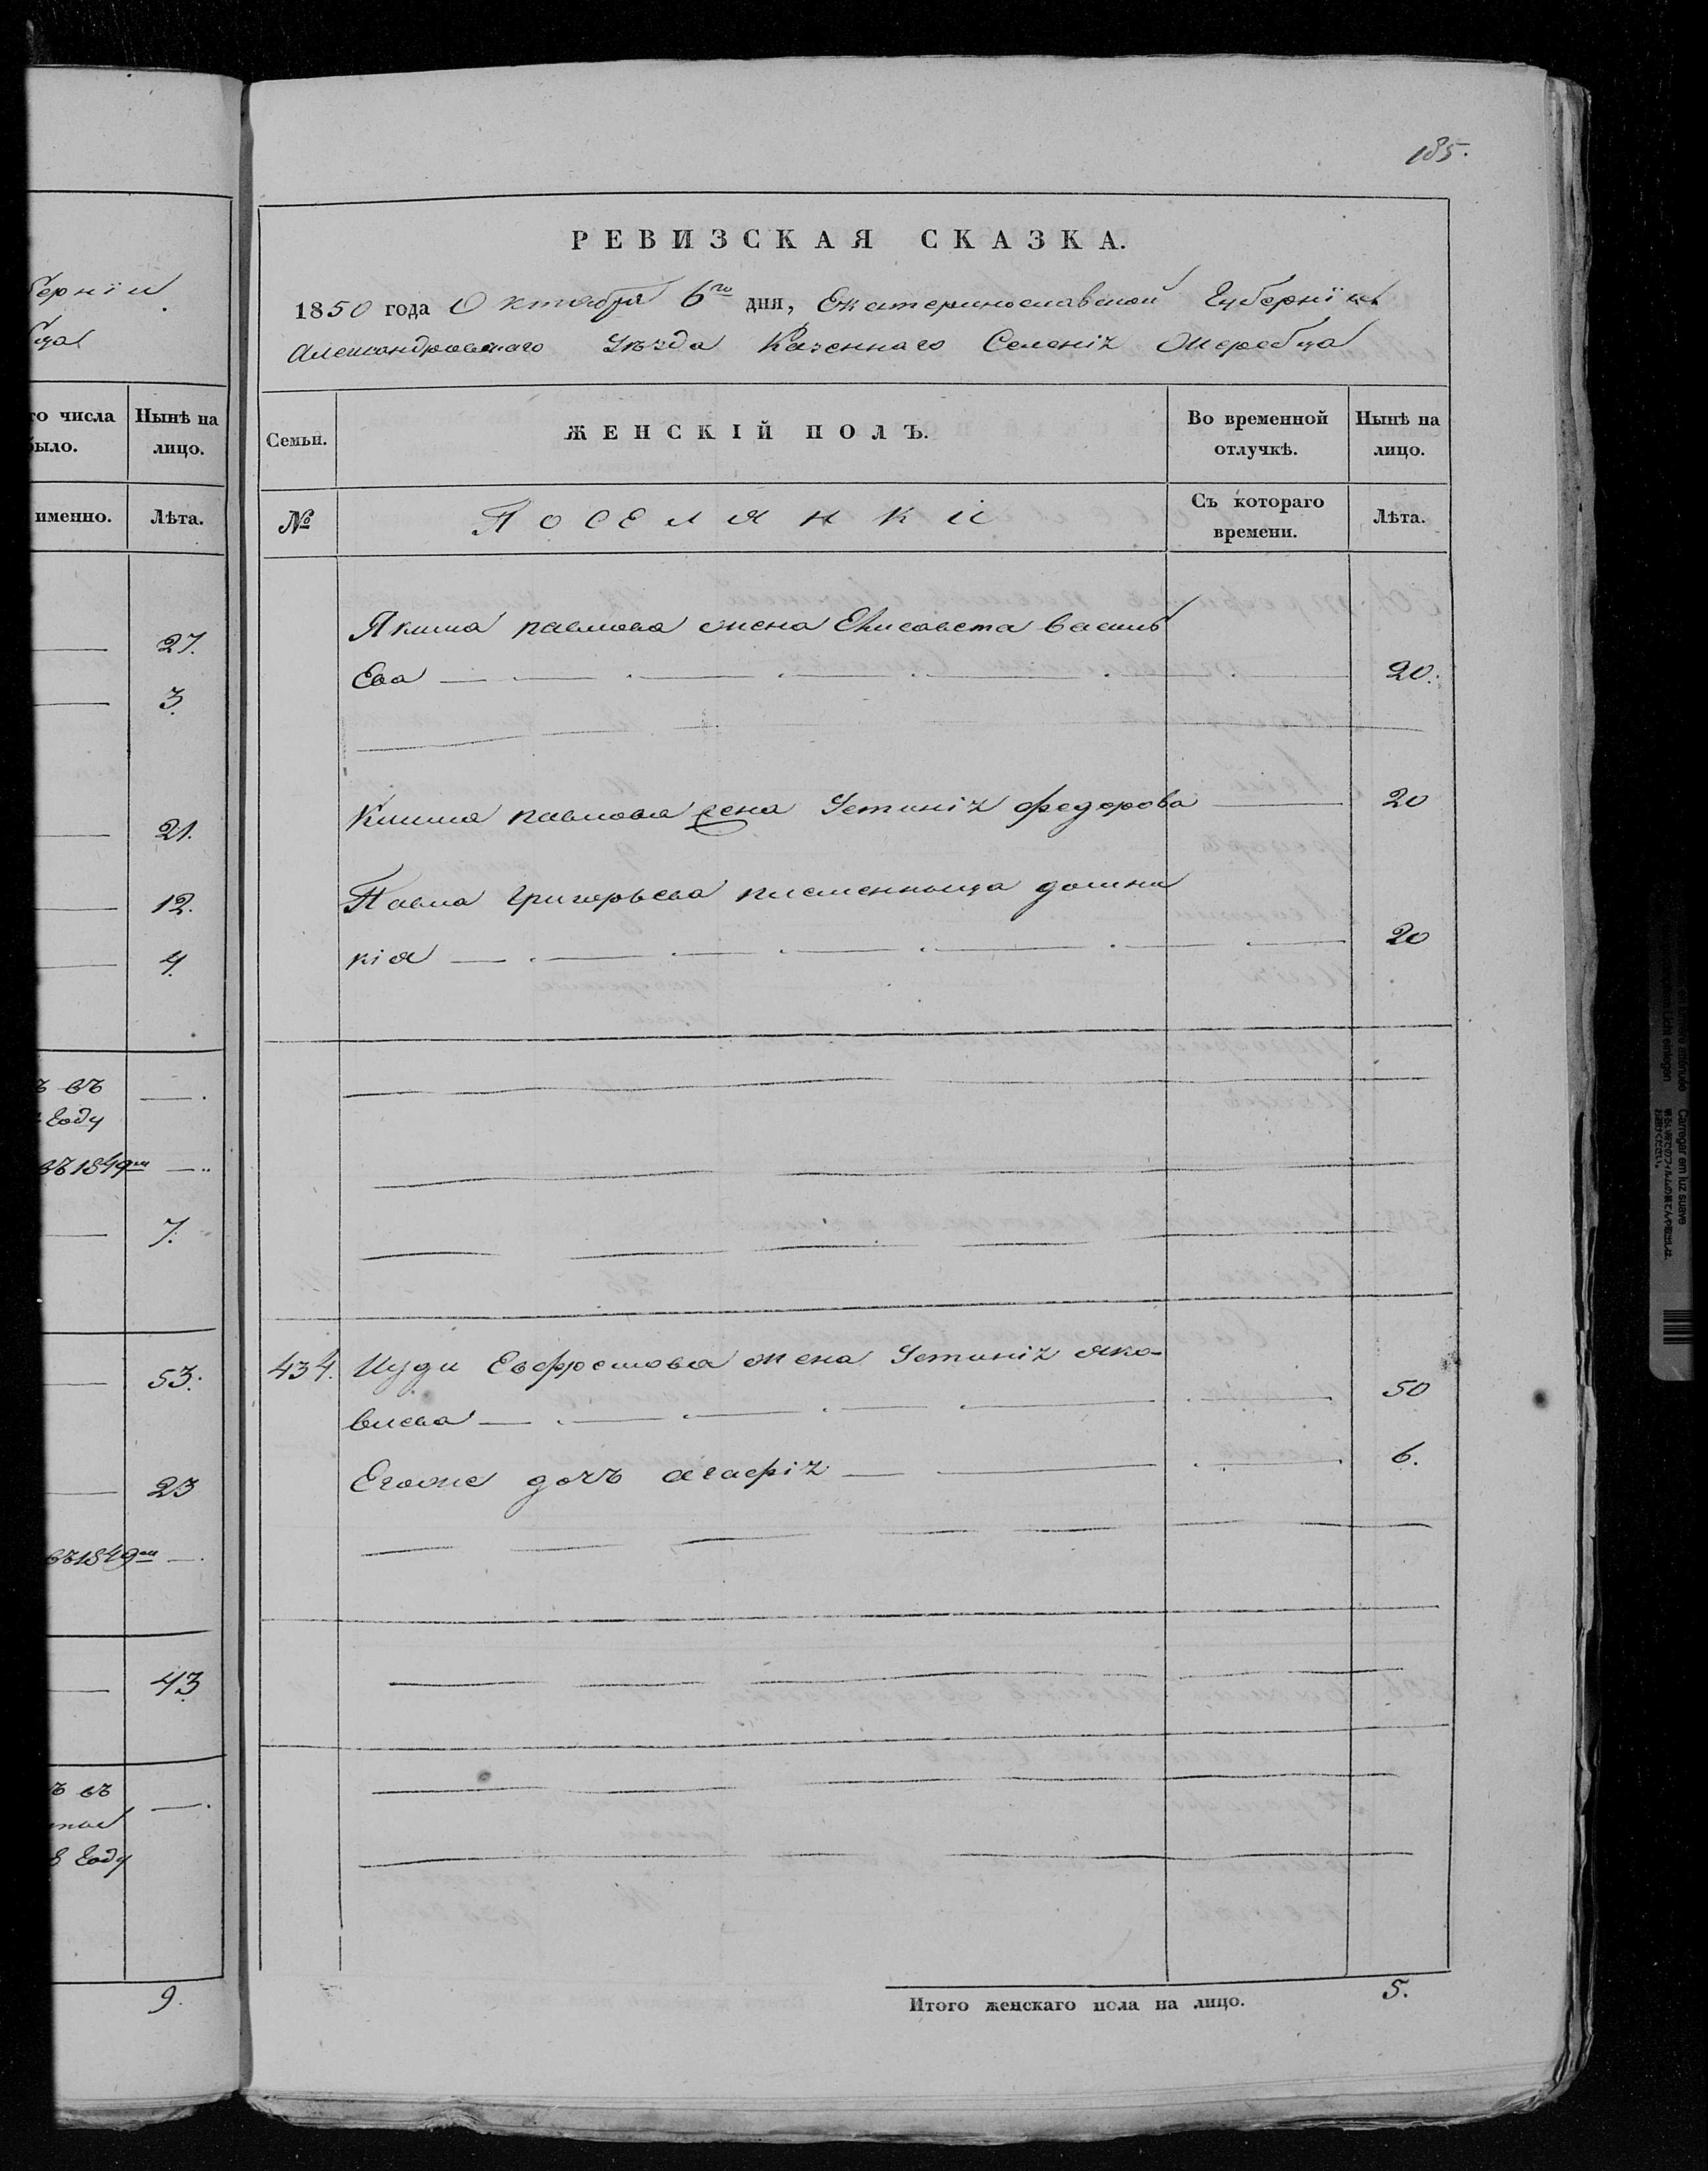 185.
РЕВИЗСКАЯ СКАЗКА.
1850 года Октября 6го дня, Екатеринославской Губерніи
Александровскаго Уѣзда Казеннаго Селенія Жеребца
Семьи. ЖЕНСКІЙ ПОЛЪ. Во временной отлучкѣ. Нынѣ на лицо.
№ Поселянки Съ котораго времени. Лѣта.
Якима павлова жена Елисавета василь
Ева 20.
Клима павлова жена Устинія федорова 20
Павла григорьева племенныца домни
кія 20
434. Евфремова жена Устинія яко-
влева 50
Егоже дочъ агафія 6.
Итого женскаго пола на лицо. 5.
берніи
бца
го числа было. Нынѣ на лицо.
именно. Лѣта.
27.
3.
21.
12.
4.
ъ въ
году
въ 1849м
7.
53.
23
въ 1849м
43
ъ въ
году
9.